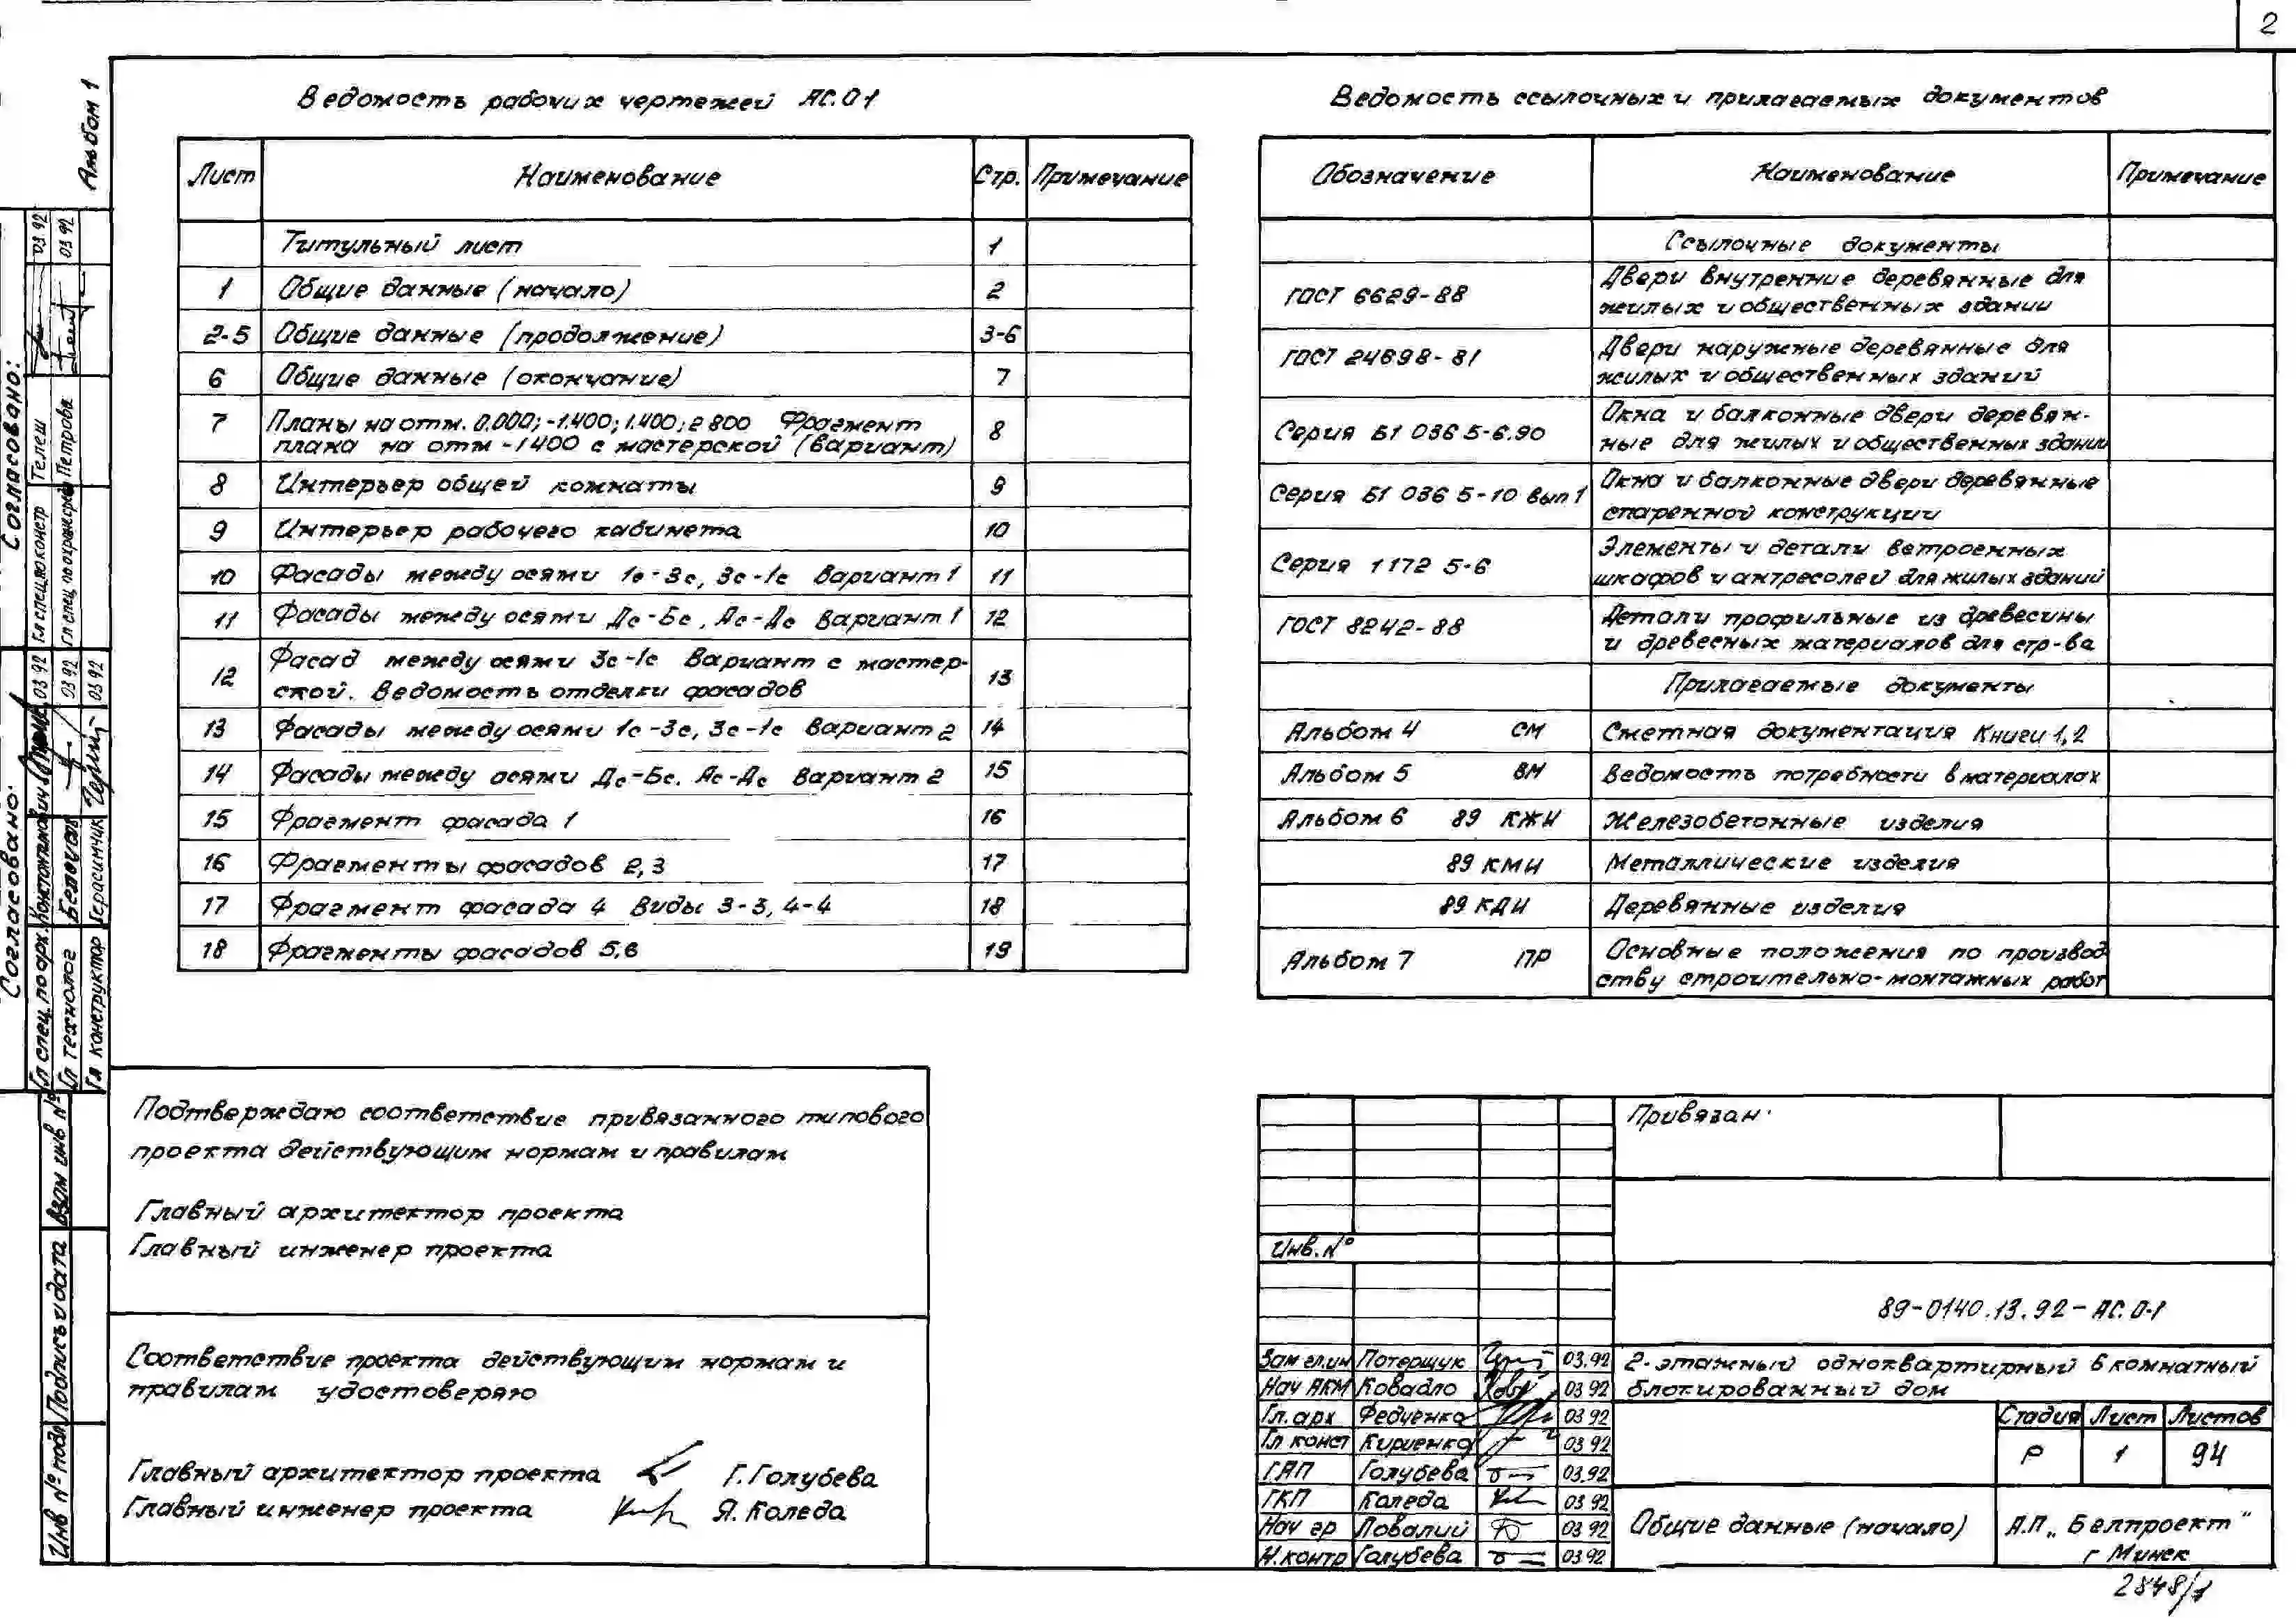 2
Альбом 1
Ведомость рабочих чертежей АС.01
Лист Наименование Стр. Примечание
Титульный лист 1
1 Общие данные (начало) 2
2-5 Общие данные (продолжение) 3-6
6 Общие данные (окончание) 7
7 Планы на отм. 0.000; -1.400; 1.400; 2 800 Фрагмент 8
плана на отм -1400 с мастерской (вариант)
8 Интерьер общей комнаты 9
9 Интерьер рабочего кабинета 10
10 Фасады между осями 1с-3с, 3с-1с Вариант 1 11
11 Фасады между осями Дс-Бс, Ас-Дс Вариант 1 12
12 Фасад между осями 3с-1с Вариант с мастер- 13
ской. Ведомость отделки фасадов
13 Фасады между осями 1с-3с, 3с-1с Вариант 2 14
14 Фасады между осями Дс-Бс. Ас-Дс Вариант 2 15
15 Фрагмент фасада 1 16
16 Фрагменты фасадов 2,3 17
17 Фрагмент фасада 4 Виды 3-3, 4-4 18
18 Фрагменты фасадов 5,6 19
Ведомость ссылочных и прилагаемых документов
Обозначение Наименование Примечание
Ссылочные документы
ГОСТ 6629-88 Двери внутренние деревянные для
жилых и общественных здании
ГОСТ 24698-81 Двери наружные деревянные для
жилых и общественных зданий
Серия Б1 036 5-6.90 Окна и балконные двери деревян-
ные для жилых и общественных здании
Серия Б1 036 5-10 вып 1 Окна и балконные двери деревянные
спаренной конструкции
Серия 1 172 5-6 Элементы и детали встроенных
шкафов и антресолей для жилых зданий
ГОСТ 8242-88 Детали профильные из древесины
и древесных материалов для стр-ва
Прилагаемые документы
Альбом 4 СМ Сметная документация Книги 1,2
Альбом 5 ВМ Ведомость потребности в материалах
Альбом 6 89 КЖИ Железобетонные изделия
89 КМИ Металлические изделия
89 КДИ Деревянные изделия
Альбом 7 ПР Основные положения по производ-
ству строительно-монтажных работ
Подтверждаю соответствие привязанного типового
проекта действующим нормам и правилам
Главный архитектор проекта
Главный инженер проекта
Соответствие проекта действующим нормам и
правилам удостоверяю
Главный архитектор проекта Г. Голубева
Главный инженер проекта Я. Коледа
Согласовано:
Гл спец по констр Телеш 03 92
Гл спец по охране Петрова 03 92
Согласовано:
Гл спец. по орх. 03 92
Гл технолог 03 92
Гл конструктор Герасимчик 03 92
Взам инв №
Подпись и дата
Инв № подл
Привязан:
Инв. №
89-0140.13.92-АС.0-1
Зам гл.ин Потерщук 03.92
Нач АКМ Ковадло 03 92
Гл. арх Федченко 03 92
Гл конст Кириенко 03 92
ГАП Голубева 03.92
ГКП Каледа 03 92
Нач гр Ловалий 03 92
Н.контр Голубева 03.92
2-этажный одноквартирный 6 комнатный
блокированный дом
Стадия Лист Листов
Р 1 94
Общие данные (начало)
А.П „Белпроект"
г Минск
2848/1